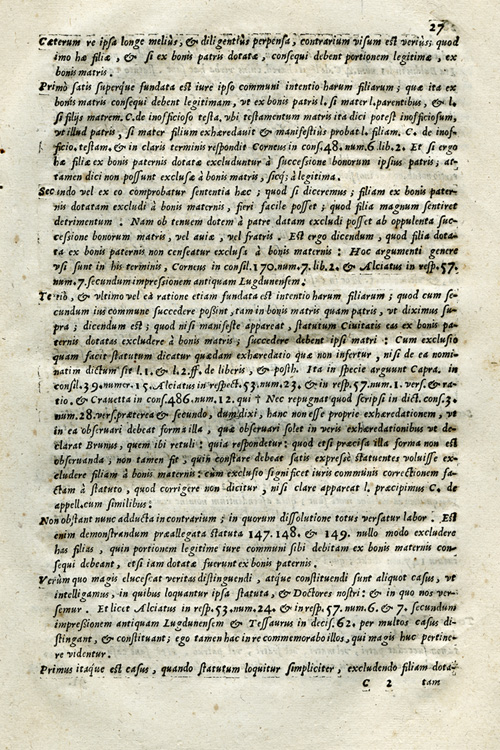 27
Cæterum re ipsa longe meliùs, & diligentiùs perpensa, contrarium visum est verius; quod
imo hæ filiæ, & si ex bonis patris dotatæ, consequi debent portionem legitimæ, ex
bonis matris.
Primò satis superque fundata est iure ipso communi intentio harum filiarum; quæ ita ex
bonis matris consequi debent legitimam, vt ex bonis patris l. si mater l. parentibus, & l.
si filijs matrem. C. de inofficioso testa. vbi testamentum matris ita dici potest inofficiosum,
vt illud patris, si mater filium exhæredauit & manifestiùs probat l. filiam. C. de inof-
ficio. testam. & in claris terminis respondit Corneus in cons. 48. num. 6. lib. 2. Et si ergo
hæ filiæ ex bonis paternis dotatæ excluduntur à successione bonorum ipsius patris; at-
tamen dici non possunt exclusæ à bonis matris, sicq; à legitima.
Secundo vel ex eo comprobatur sententia hæc; quod si diceremus; filiam ex bonis pater-
nis dotatam excludi à bonis maternis, fieri facile posset; quod filia magnum sentiret
detrimentum: Nam ob tenuem dotem à patre datam excludi posset ab oppulenta suc-
cessione bonorum matris, vel auiæ, vel fratris. Est ergo dicendum, quod filia dota-
ta ex bonis paternis non censeatur exclusa à bonis maternis: Hoc argumenti genere
vsi sunt in his terminis, Corneus in consil. 170. num. 7. lib. 2. & Alciatus in resp. 57.
num. 7. secundum impressionem antiquam Lugdunensem.
Tertiò, & vltimo vel ea ratione etiam fundata est intentio harum filiarum; quod cum se-
cundum ius commune succedere possint, tam in bonis matris quam patris, vt diximus su-
pra; dicendum est; quod nisi manifeste appareat, statutum Ciuitatis eas ex bonis pa-
ternis dotatas excludere à bonis matris; succedere debent ipsi matri: Cum exclusio
quam facit statutum dicatur quædam exhæredatio quæ non infertur, nisi de ea nomi-
natim dictum sit l. 1. & l. 2. ff. de liberis, & posth. Ita in specie arguunt Capra. in
consil. 39. numer. 15. Alciatus in respect. 53. num. 23. & in resp. 57. num. 1. vers. & ra-
tio. & Crauetta in cons. 486. num. 12. qui † Nec repugnat quod scripsi in dict. cons. 3.
num. 28. vers. præterea & secundo, dum dixi, hanc non esse proprie exhæredationem, vt
in ea obseruari debeat forma illa, quæ obseruari solet in veris exhæredationibus vt de-
clarat Brunus, quem ibi retuli: quia respondetur: quod etsi præcisa illa forma non est
obseruanda, non tamen fit, quin constare debeat satis expresse statuentes voluisse ex-
cludere filiam à bonis maternis: cùm exclusio significet iuris communis correctionem fa-
ctam à statuto, quod corrigere non dicitur, nisi clare appareat l. præcipimus C. de
appell. cum similibus.
Non obstant nunc adducta in contrarium; in quorum dissolutione totus versatur labor. Est
enim demonstrandum præallegata statuta 147. 148. & 149. nullo modo excludere
has filias, quin portionem legitime iure communi sibi debitam ex bonis maternis con-
sequi debeant, etsi iam dotatæ fuerunt ex bonis paternis.
Verùm quo magis elucescat veritas distinguendi, atque constituendi sunt aliquot casus, vt
intelligamus, in quibus loquantur ipsa statuta, & Doctores nostri: & in quo nos ver-
semur. Et licet Alciatus in resp. 53. num. 24. & in resp. 57. num. 6. & 7. secundum
impressionem antiquam Lugdunensem & Tessaurus in decis. 62. per multos casus di-
stingant, & constituant; ego tamen hac in re commemorabo illos, qui magis huc pertine-
re videntur.
Primus itaque est casus, quando statutum loquitur simpliciter, excludendo filiam dota-
C 2 tam